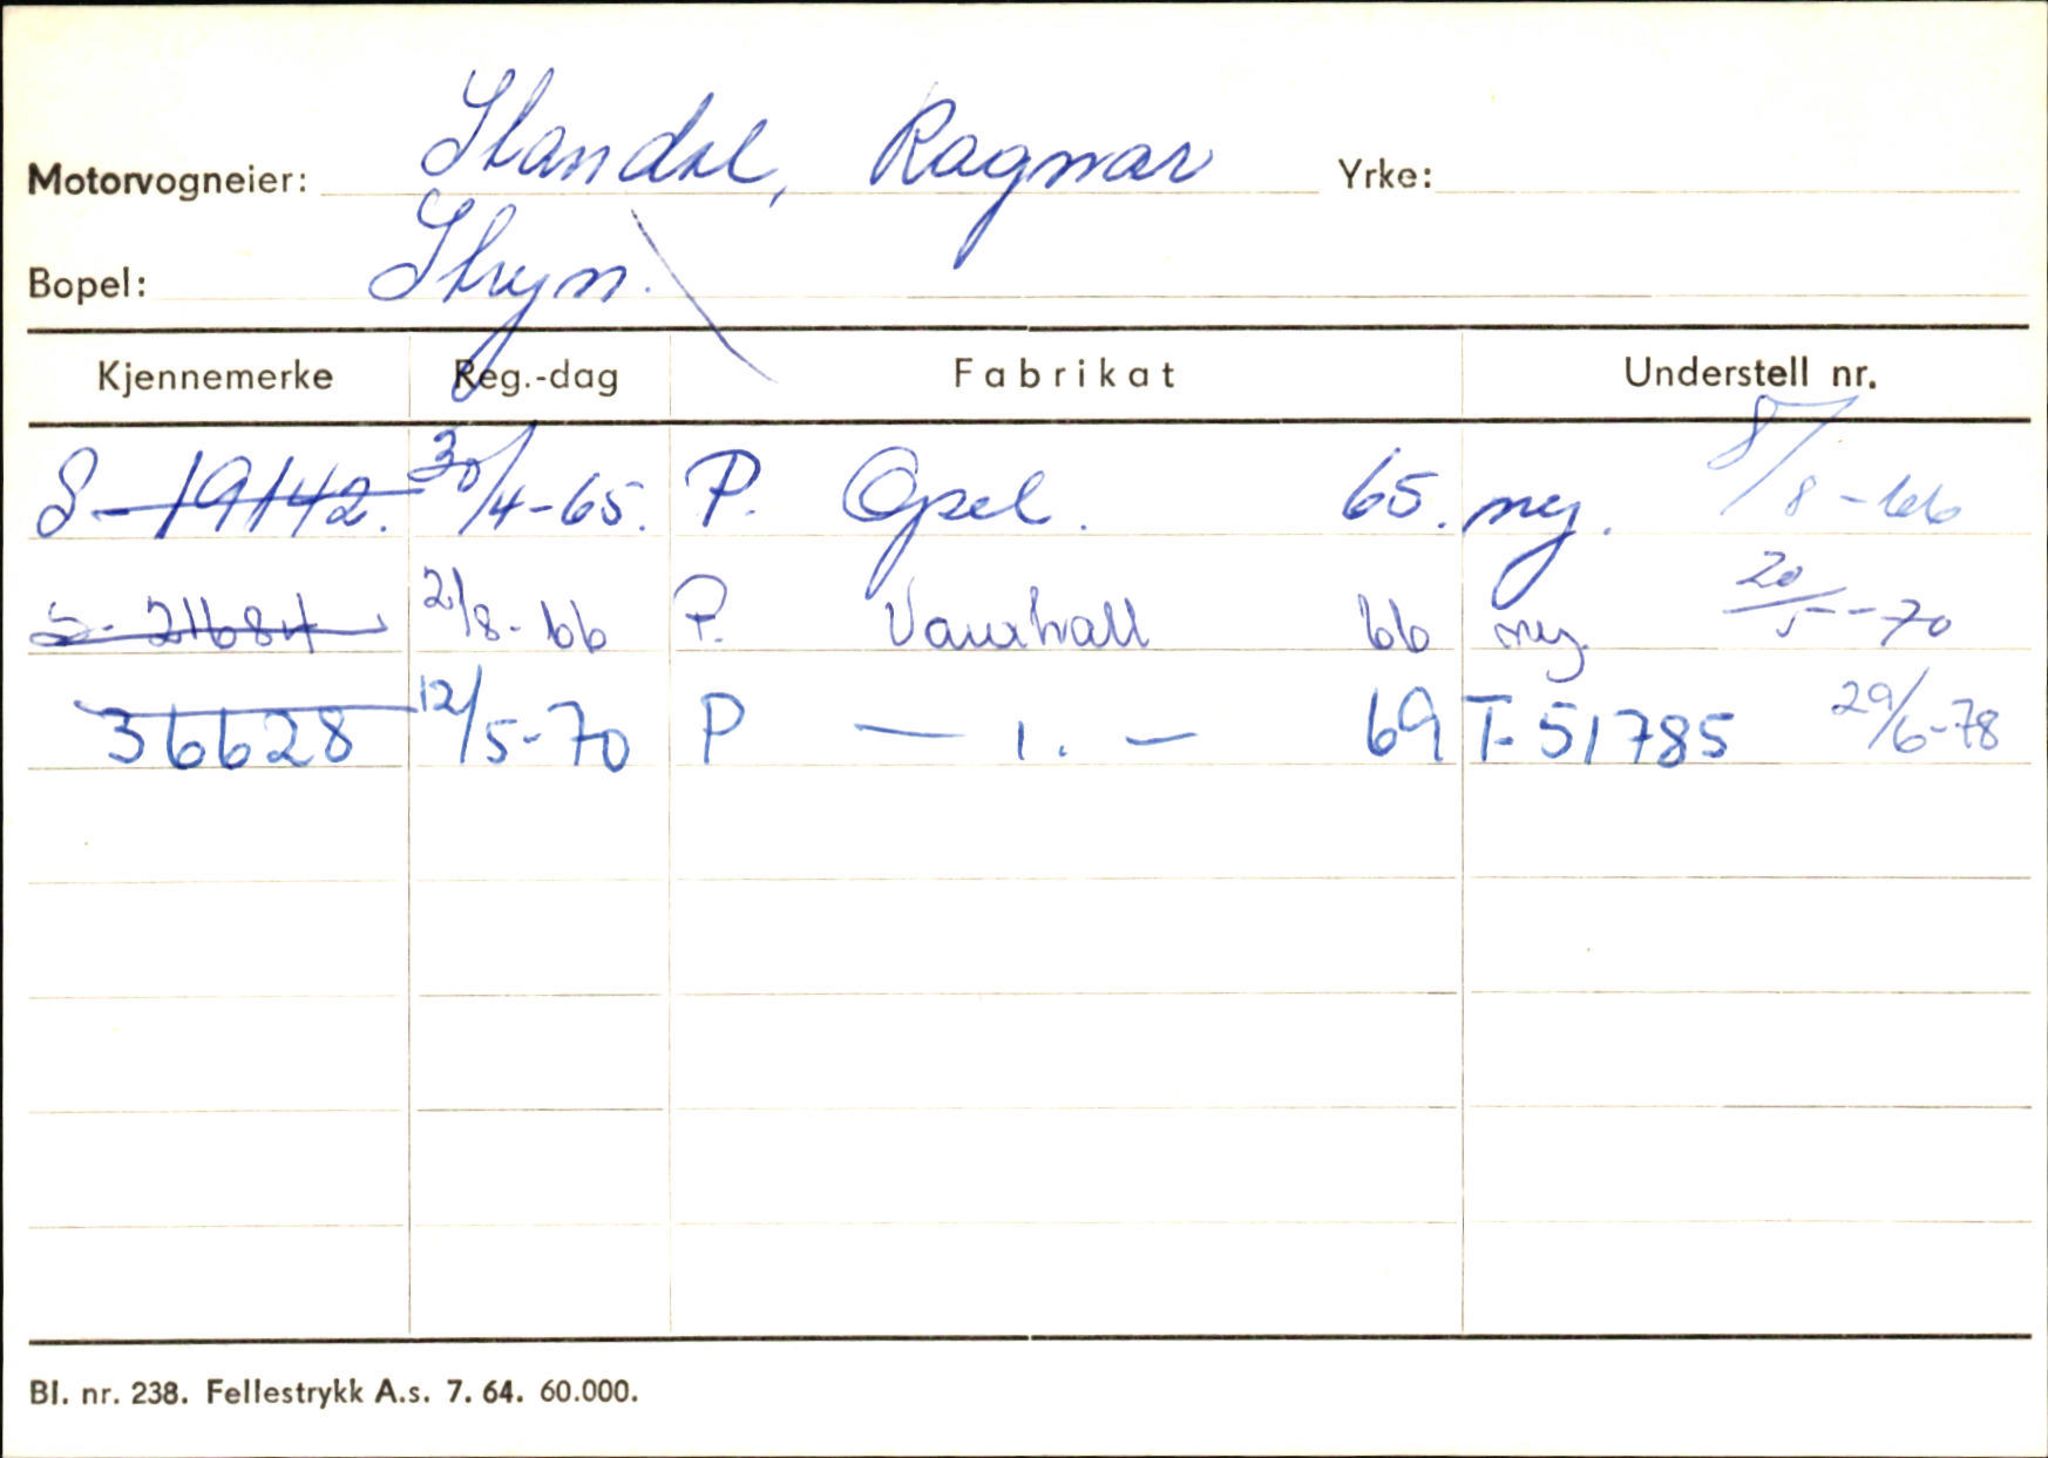 Motorvogneier: Standal, Ragnar Yrke:
Bopel: Stryn.
Kjennemerke Reg.-dag Fabrikat Understell nr.
S-19142. 30/4-65. P. Opel. 65. ny. 8/8-66
S-21684 2/8-66 P. Vauxhall 66 ny. 20/5-70
36628 12/5-70 P — 1. — 69 T-51785 29/6-78
Bl. nr. 238. Fellestrykk A.s. 7. 64. 60.000.